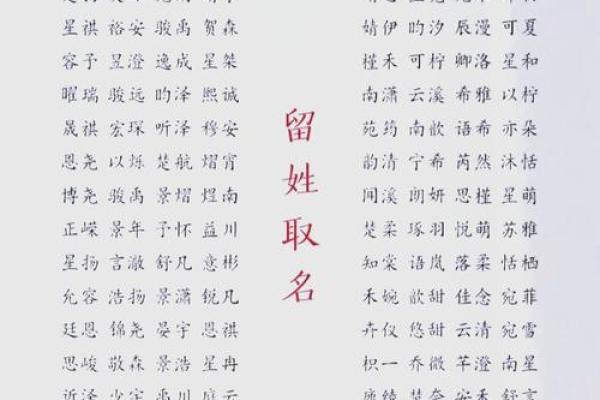 星祺 裕安 骏禹 贺森
容予 昱澄 逸成 星桀
曜瑞 骏远 昀泽 熙诚
晟祺 宏琛 听泽 穆安
恩尧 以烁 楚航 熠宵
博尧 骏禹 景熠 煜南
正嵘 景年 予怀 益川
星扬 言澈 舒凡 意彬
允容 浩扬 景潇 锐凡
廷恩 锦尧 晏宇 恩祺
思峻 敬森 景浩 星冉
近泽 少宇 禹川 庭云
留姓取名
婧伊 昀汐 辰漫 可夏
槿禾 可柠 卿洛 星和
南潇 云溪 希雅 以柠
苑筠 南歆 语希 亦朵
韵清 宁希 芮然 沐恬
闻溪 朗妍 思槿 星萌
楚柔 琢羽 悦萌 苏雅
知棠 语岚 落柔 恬栖
禾婉 歆甜 佳念 宛菲
卉仪 悠甜 云清 宛雪
枳一 乔微 芊澄 南星
楚奈 安禾 舒言